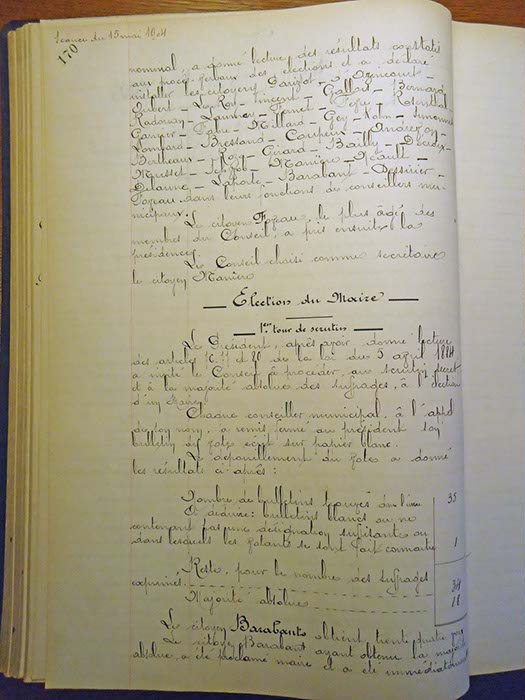 Séance du 15 mai 1904
170
nominal, a donné lecture des résultats constatés
aux procès-verbaux des élections et a déclaré
installer les citoyens Dauzot - d'Azincourt -
Hubert - Le Roy - Vincent - Gallois - Bernard
Radouan - Launnes - Famet - Pépin - Rosenthal -
Garnier - Faure - Millard - Gey - Kohn - Simonnet
Lombard - Bressand - Coupeur - Andrejon
Bertheaux - Régy - Girard - Bailly - Decroix -
Musset - Schwob - Manière - Réault -
Delaune - Laporte - Barabant - Dessirier -
Fozeau dans leurs fonctions de conseillers mu-
nicipaux.
Le citoyen Fozeau, le plus âgé des
membres du Conseil, a pris ensuite la
présidence.
Le Conseil choisi comme secrétaire
le citoyen Manière
Election du Maire
1er tour de scrutin
Le Président, après avoir donné lecture
des articles 10. 77 et 20 de la loi du 5 avril 1884
a invité le Conseil à procéder, au scrutin secret
et à la majorité absolue des suffrages, à l'élection
d'un Maire.
Chaque conseiller municipal, à l'appel
de son nom, a remis fermé au président son
bulletin de vote écrit sur papier blanc.
Le dépouillement du vote a donné
les résultats ci-après :
Nombre de bulletins trouvés dans l'urne 35
A déduire: bulletins blancs ou ne
contenant pas une désignation suffisante ou
dans lesquels les votants se sont fait connaître 1
Reste, pour le nombre des suffrages
exprimés 34
Majorité absolue 18
Le citoyen Barabant obtient trente quatre voix
Le citoyen Barabant ayant obtenu la majorité
absolue, a été proclamé maire et a été immédiatement